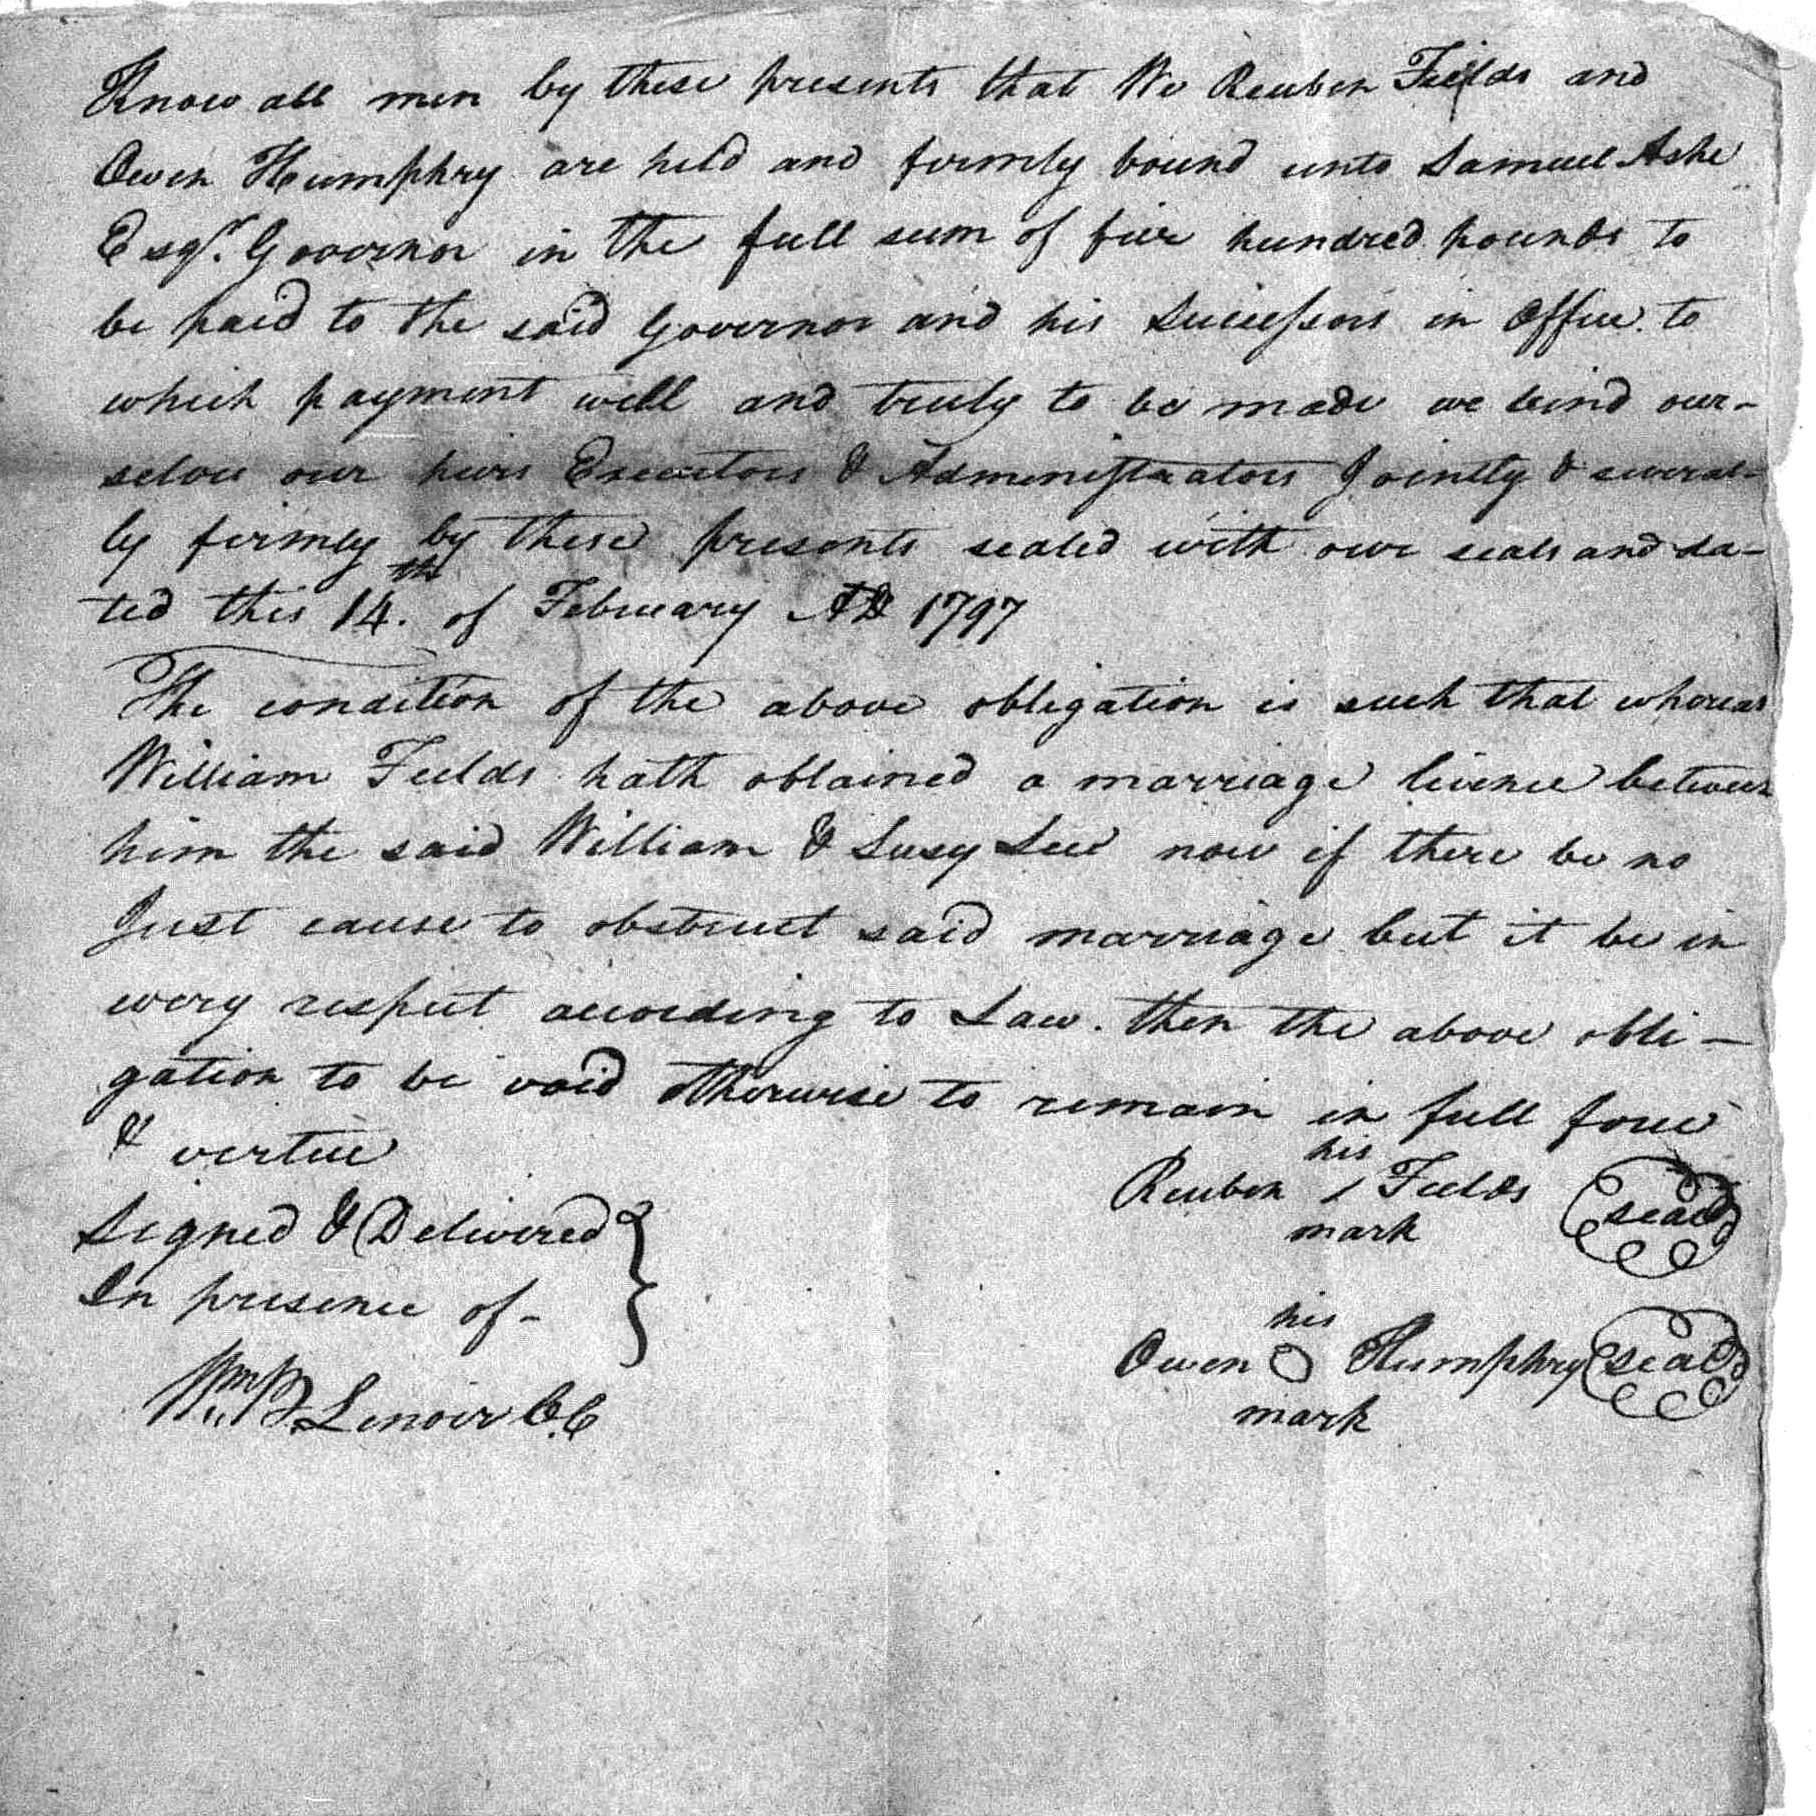 Know all men by these presents that We Reuben Fields and
Owen Humphry are held and firmly bound unto Samuel Ashe
Esqr. Governor in the full sum of five hundred pounds to
be paid to the said Governor and his Successors in Office to
which payment well and truly to be made we bind our-
selves our heirs Executors & Administrators Jointly & several-
ly firmly by these presents sealed with our seals and da-
ted this 14.th of February AD 1797
The condition of the above obligation is such that whereas
William Fields hath obtained a marriage licence between
him the said William & Susy Lee now if there be no
Just cause to obstruct said marriage but it be in
every respect according to Law. then the above obli-
gation to be void otherwise to remain in full force
& vertue
Signed & Delivered
In presence of-
Wm B. Lenoir C.C
his
Reuben / Fields seal
mark
his
Owen O Humphry seal
mark